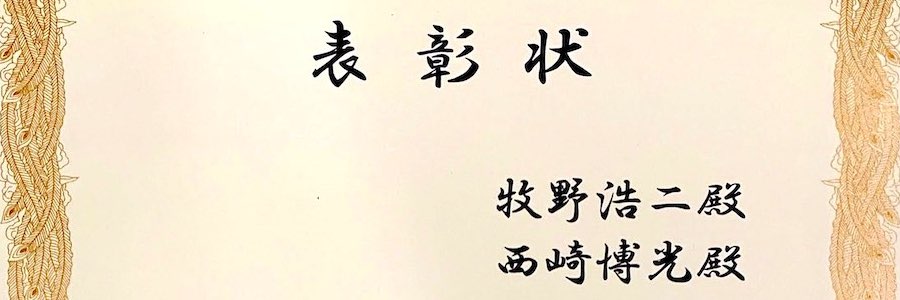 表彰状
牧野浩二殿
西崎博光殿